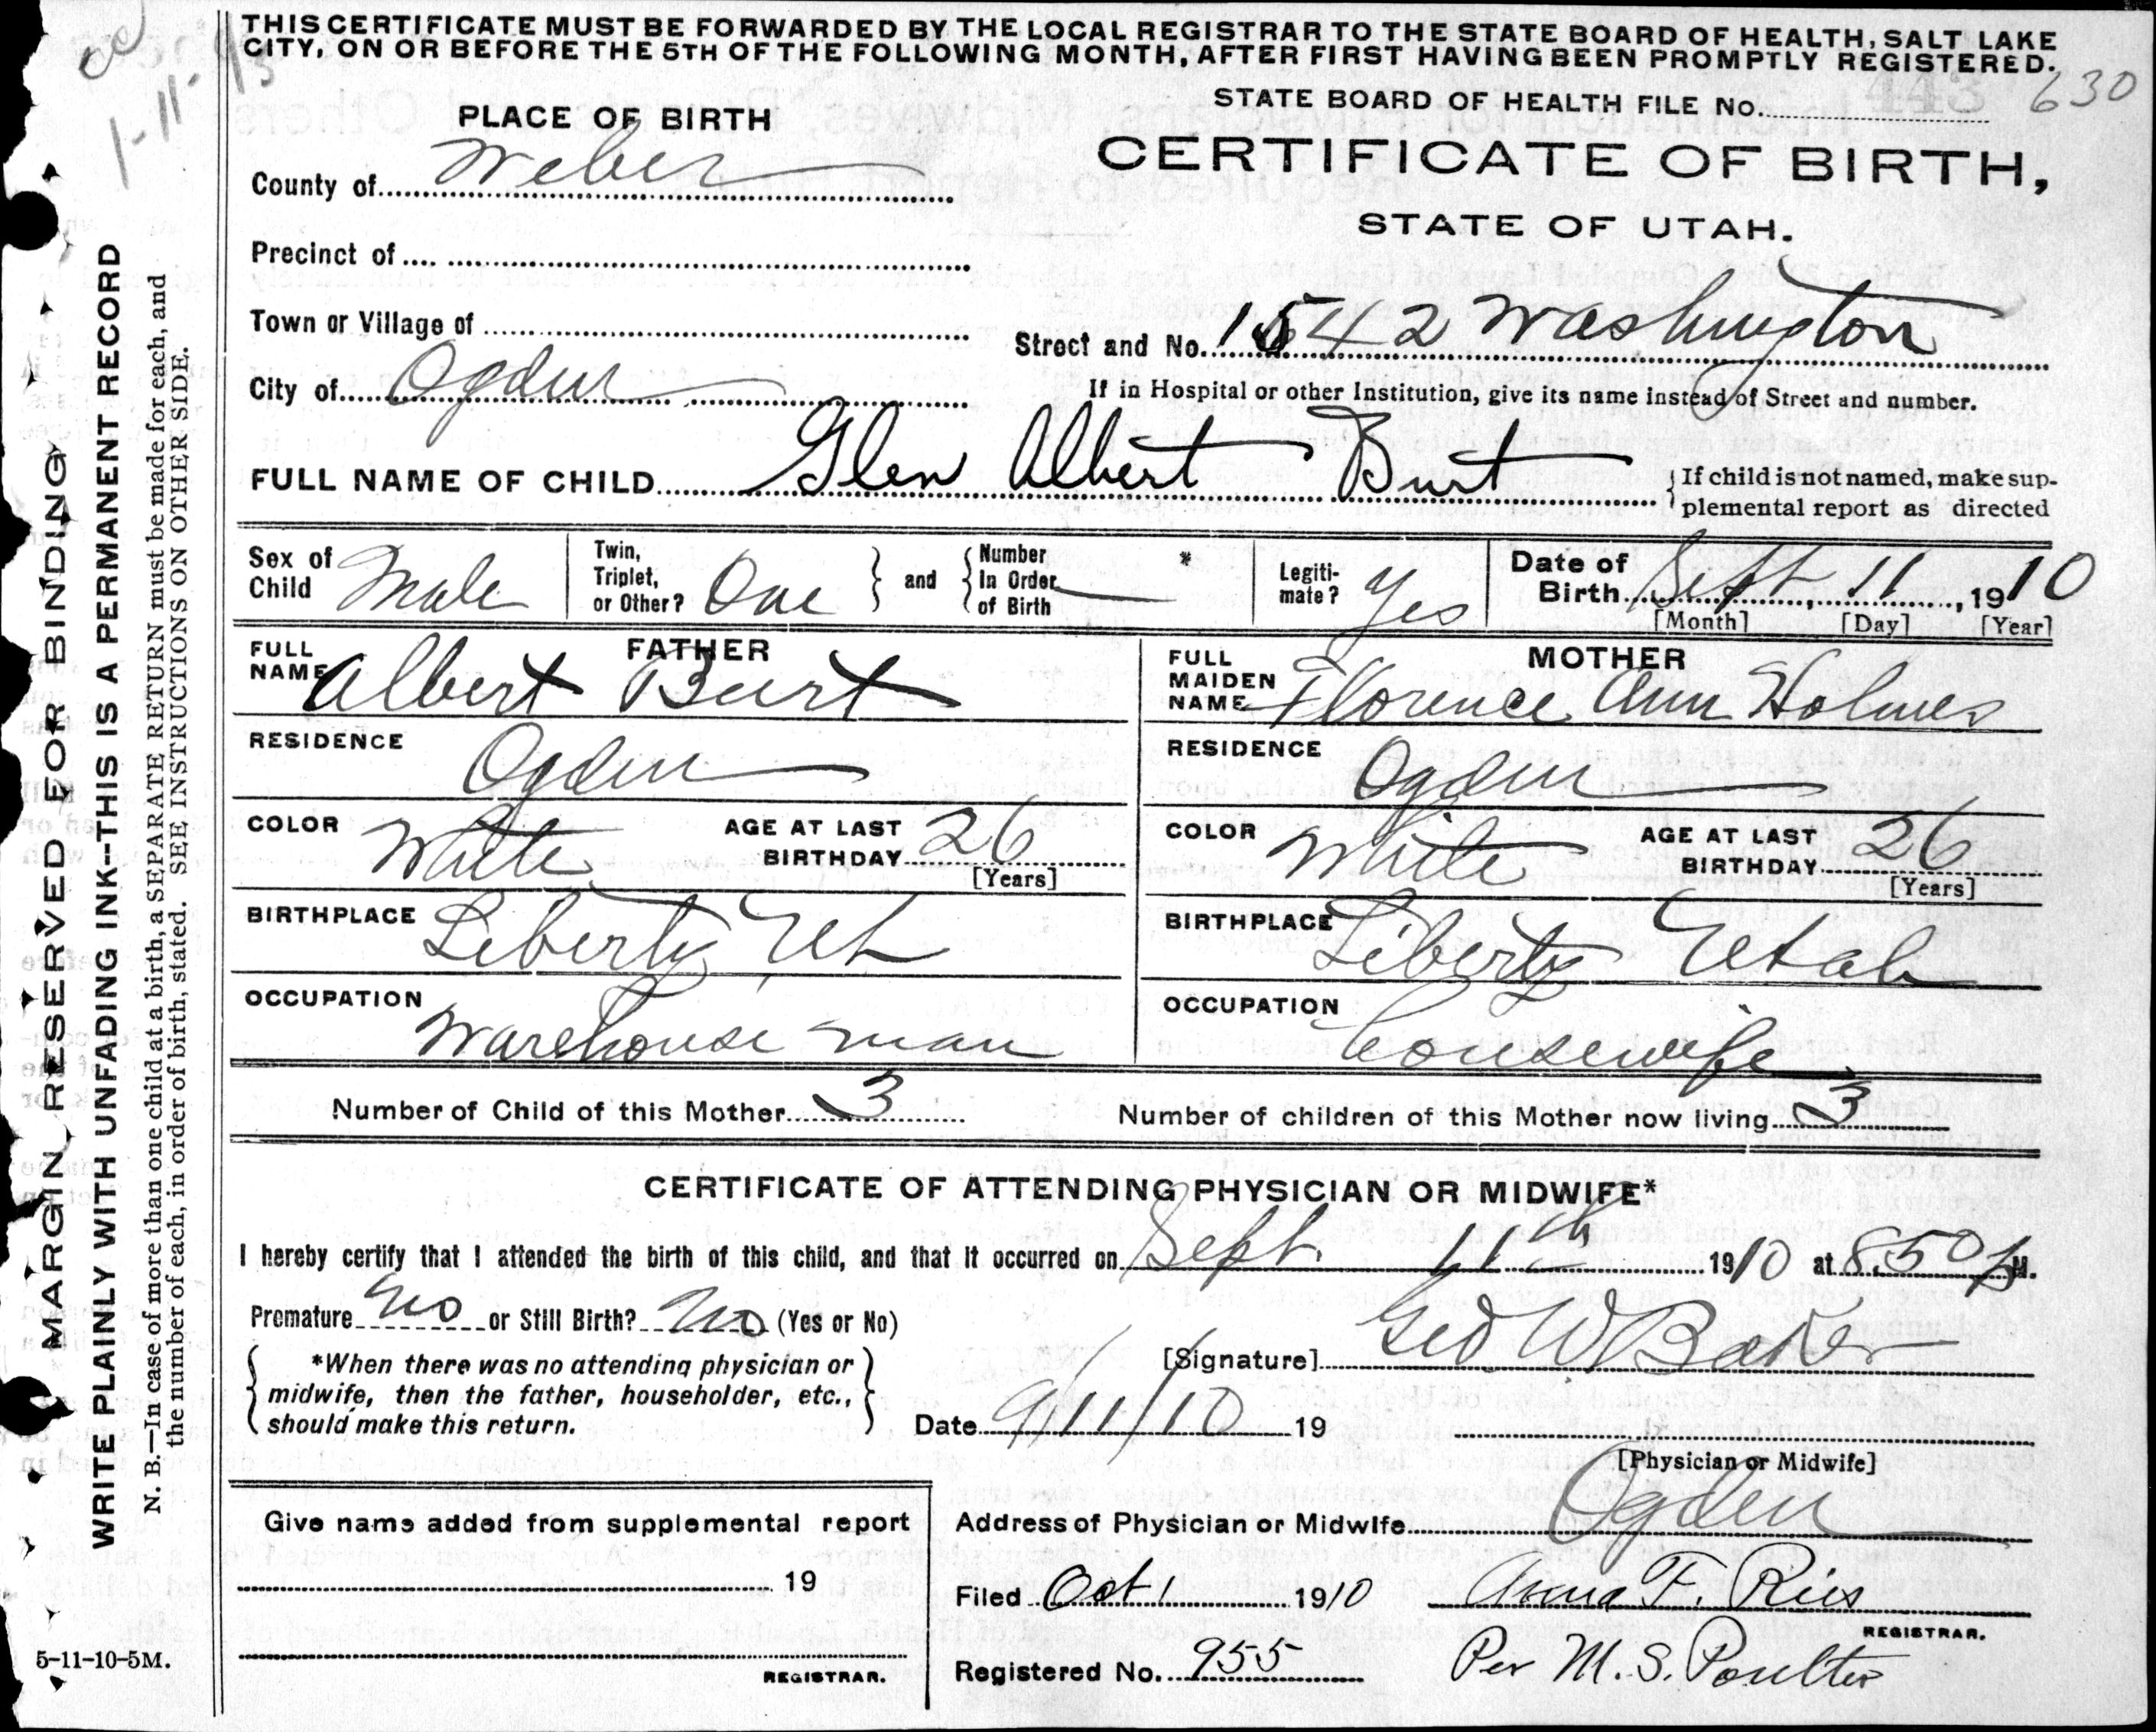 THIS CERTIFICATE MUST BE FORWARDED BY THE LOCAL REGISTRAR TO THE STATE BOARD OF HEALTH, SALT LAKE
CITY, ON OR BEFORE THE 5TH OF THE FOLLOWING MONTH, AFTER FIRST HAVING BEEN PROMPTLY REGISTERED.
STATE BOARD OF HEALTH FILE No. 443 630
PLACE OF BIRTH
CERTIFICATE OF BIRTH,
STATE OF UTAH.
County of Weber
Precinct of
Town or Village of
Street and No. 1542 Washington
City of Ogden
If in Hospital or other Institution, give its name instead of Street and number.
FULL NAME OF CHILD Glen Albert Burt
If child is not named, make sup-
plemental report as directed
Sex of
Child Male
Twin,
Triplet,
or Other? One
and
Number
In Order
of Birth
*
Legiti-
mate? Yes
Date of
Birth Sept, 11, 1910
[Month] [Day] [Year]
FATHER
FULL
NAME Albert Burt
RESIDENCE Ogden
COLOR White
AGE AT LAST
BIRTHDAY 26
[Years]
BIRTHPLACE Liberty Ut
OCCUPATION
Warehouse man
MOTHER
FULL
MAIDEN
NAME Florence Ann Holmes
RESIDENCE Ogden
COLOR White
AGE AT LAST
BIRTHDAY 26
[Years]
BIRTHPLACE Liberty Utah
OCCUPATION
housewife
Number of Child of this Mother 3
Number of children of this Mother now living 3
CERTIFICATE OF ATTENDING PHYSICIAN OR MIDWIFE*
I hereby certify that I attended the birth of this child, and that it occurred on Sept. 11th 1910 at 8.50 p M.
Premature no or Still Birth? no (Yes or No)
*When there was no attending physician or
midwife, then the father, householder, etc.,
should make this return.
[Signature] Geo W Baker
Date 9/11/10 19
[Physician or Midwife]
Give name added from supplemental report
19
REGISTRAR.
Address of Physician or Midwife Ogden
Filed Oct 1 1910
Anna F. Ries
REGISTRAR.
Registered No. 955
Per M. S. Poulter
MARGIN RESERVED FOR BINDING
WRITE PLAINLY WITH UNFADING INK--THIS IS A PERMANENT RECORD
N. B.—In case of more than one child at a birth, a SEPARATE RETURN must be made for each, and
the number of each, in order of birth, stated. SEE INSTRUCTIONS ON OTHER SIDE.
5-11-10-5M.